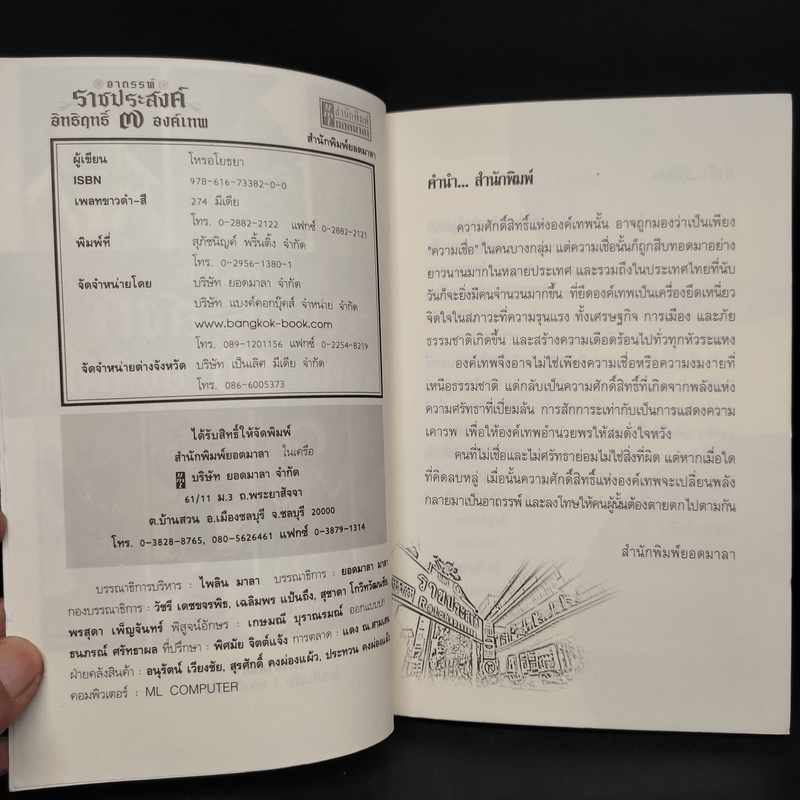 อาถรรพ์
ราชประสงค์
อิทธิฤทธิ์ ๗ องค์เทพ
สำนักพิมพ์
ยอดมาลา
สำนักพิมพ์ยอดมาลา
ผู้เขียน โหรอโยธยา
ISBN 978-616-73382-0-0
เพลทขาวดำ-สี 274 มีเดีย
โทร. 0-2882-2122 แฟกซ์ 0-2882-2121
พิมพ์ที่ สุภัชนิญค์ พริ้นติ้ง จำกัด
โทร. 0-2956-1380-1
จัดจำหน่ายโดย บริษัท ยอดมาลา จำกัด
บริษัท แบงค์คอกบุ๊คส์ จำหน่าย จำกัด
www.bangkok-book.com
โทร. 089-1201156 แฟกซ์ 0-2254-8219
จัดจำหน่ายต่างจังหวัด บริษัท เป็นเลิศ มีเดีย จำกัด
โทร. 086-6005373
ได้รับสิทธิ์ให้จัดพิมพ์
สำนักพิมพ์ยอดมาลา ในเครือ
บริษัท ยอดมาลา จำกัด
61/11 ม.3 ถ.พระยาสัจจา
ต.บ้านสวน อ.เมืองชลบุรี จ.ชลบุรี 20000
โทร. 0-3828-8765, 080-5626461 แฟกซ์ 0-3879-1314
บรรณาธิการบริหาร : ไพลิน มาลา บรรณาธิการ : ยอดมาลา มาลา
กองบรรณาธิการ : วัชรี เดชขจรพิธ, เฉลิมพร แป้นถึง, สุชาดา โกวิทวัฒนชัย
พรสุดา เพ็ญจันทร์ พิสูจน์อักษร : เกษมณี บุราณรมณ์ ออกแบบปก
ธนภรณ์ ศรัทธาผล ที่ปรึกษา : พิศมัย จิตต์แจ้ง การตลาด : แดง ณ.สามเสน
ฝ่ายคลังสินค้า : อนุรัตน์ เวียงชัย, สุรศักดิ์ คงผ่องแผ้ว, ประทวน คงผ่องแผ้ว
คอมพิวเตอร์ : ML COMPUTER
คำนำ... สำนักพิมพ์
ความศักดิ์สิทธิ์แห่งองค์เทพนั้น อาจถูกมองว่าเป็นเพียง
"ความเชื่อ" ในคนบางกลุ่ม แต่ความเชื่อนั้นก็ถูกสืบทอดมาอย่าง
ยาวนานมากในหลายประเทศ และรวมถึงในประเทศไทยที่นับ
วันก็จะยิ่งมีคนจำนวนมากขึ้น ที่ยึดองค์เทพเป็นเครื่องยึดเหนี่ยว
จิตใจในสภาวะที่ความรุนแรง ทั้งเศรษฐกิจ การเมือง และภัย
ธรรมชาติเกิดขึ้น และสร้างความเดือดร้อนไปทั่วทุกหัวระแหง
องค์เทพจึงอาจไม่ใช่เพียงความเชื่อหรือความงมงายที่
เหนือธรรมชาติ แต่กลับเป็นความศักดิ์สิทธิ์ที่เกิดจากพลังแห่ง
ความศรัทธาที่เปี่ยมล้น การสักการะเท่ากับเป็นการแสดงความ
เคารพ เพื่อให้องค์เทพอำนวยพรให้สมดั่งใจหวัง
คนที่ไม่เชื่อและไม่ศรัทธาย่อมไม่ใช่สิ่งที่ผิด แต่หากเมื่อใด
ที่คิดลบหลู่ เมื่อนั้นความศักดิ์สิทธิ์แห่งองค์เทพจะเปลี่ยนพลัง
กลายมาเป็นอาถรรพ์ และลงโทษให้คนผู้นั้นต้องตายตกไปตามกัน
สำนักพิมพ์ยอดมาลา
ราชประสงค์